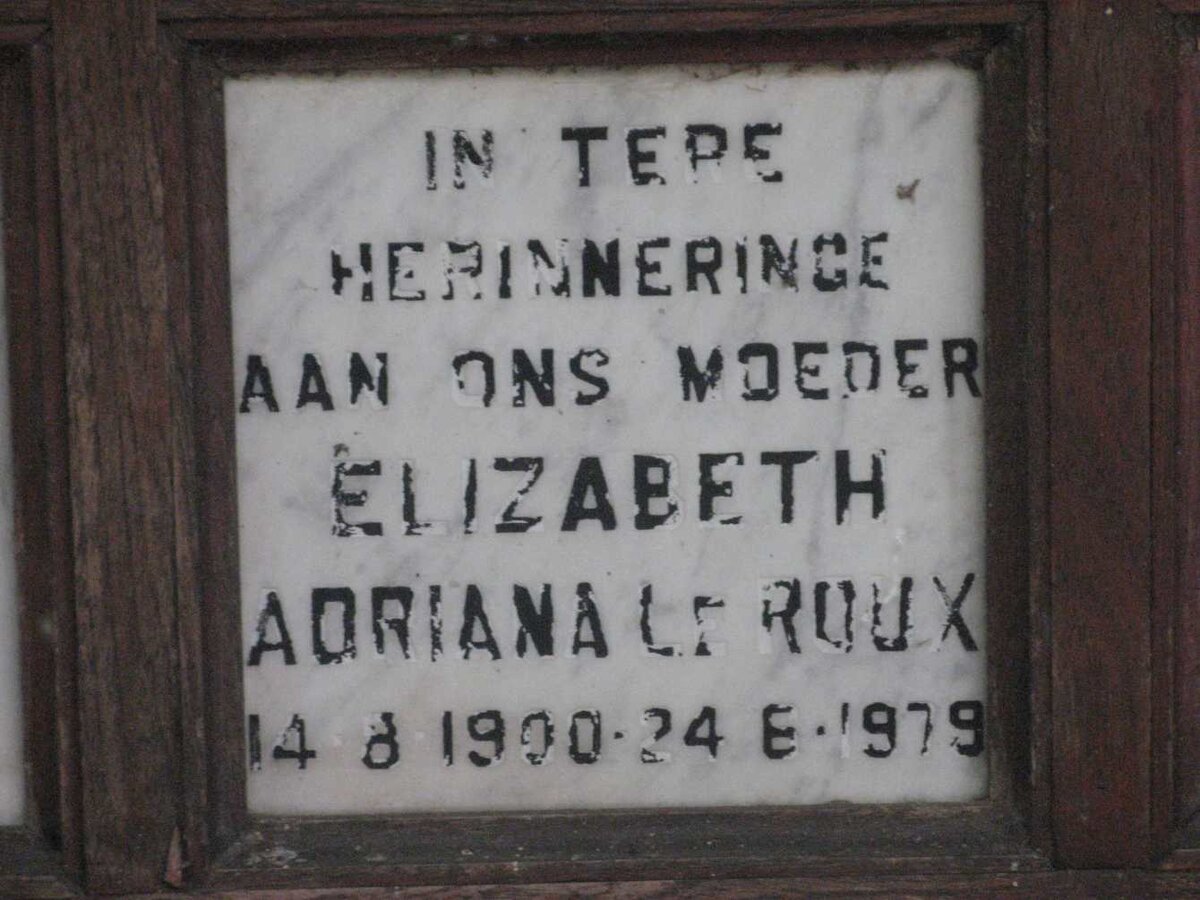 IN TERE
HERINNERINGE
AAN ONS MOEDER
ELIZABETH
ADRIANA LE ROUX
14·8·1900·24·6·1979